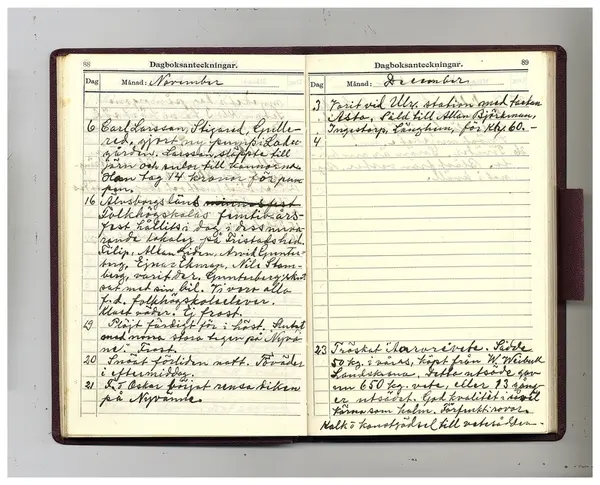 88
Dagboksanteckningar.
Dag Månad: November
6 Carl Larsson, Stigared, Gulle-
red, gjort ny pump i Lade-
gården. Larsson släppte till
rörn och
Olan tog 14 kronor för pum
pen.
16 Älvsborgs läns minnesfest
Folkhögskolas femtioårs-
fest hållits i dag i dess nuva
rande lokaler på Fristadshed.
Filip, Allan Liden, Arvid Gunter
berg, Ejnar Ekman, Nils Stom-
berg, varit der. Gunterberg skjut
sat med sin bil. Vi voro alla
f.d. folkhögskoleelever.
Klart väder. Ej frost.
19. Plöjt färdigt för i höst. Slutat
med norra stora tegen på Nyvä
ne. Frost.
20 Snöat förliden natt. Töväder
i eftermiddag.
21 D. o Oskar börjat rensa diken
på Nyvänne.
89
Dagboksanteckningar.
Dag Månad: December
3 Varit vid Ulr. station med fastan
Asta. Såld till Allan Björkman,
Ingestorp, Länghem, för Kr 60.-
4
23 Tröskat Aarovårvete. Sådde
50 kg. i våras, köpt från W. Weibull
Landskrona. Detta utsäde gav
nu 650 kg. vete, eller 13 gång
er utsädet. God kvalitet i såväl
kärna som halm. Förfrukt rovor.
Kalk o konstgödsel till vetesådden.